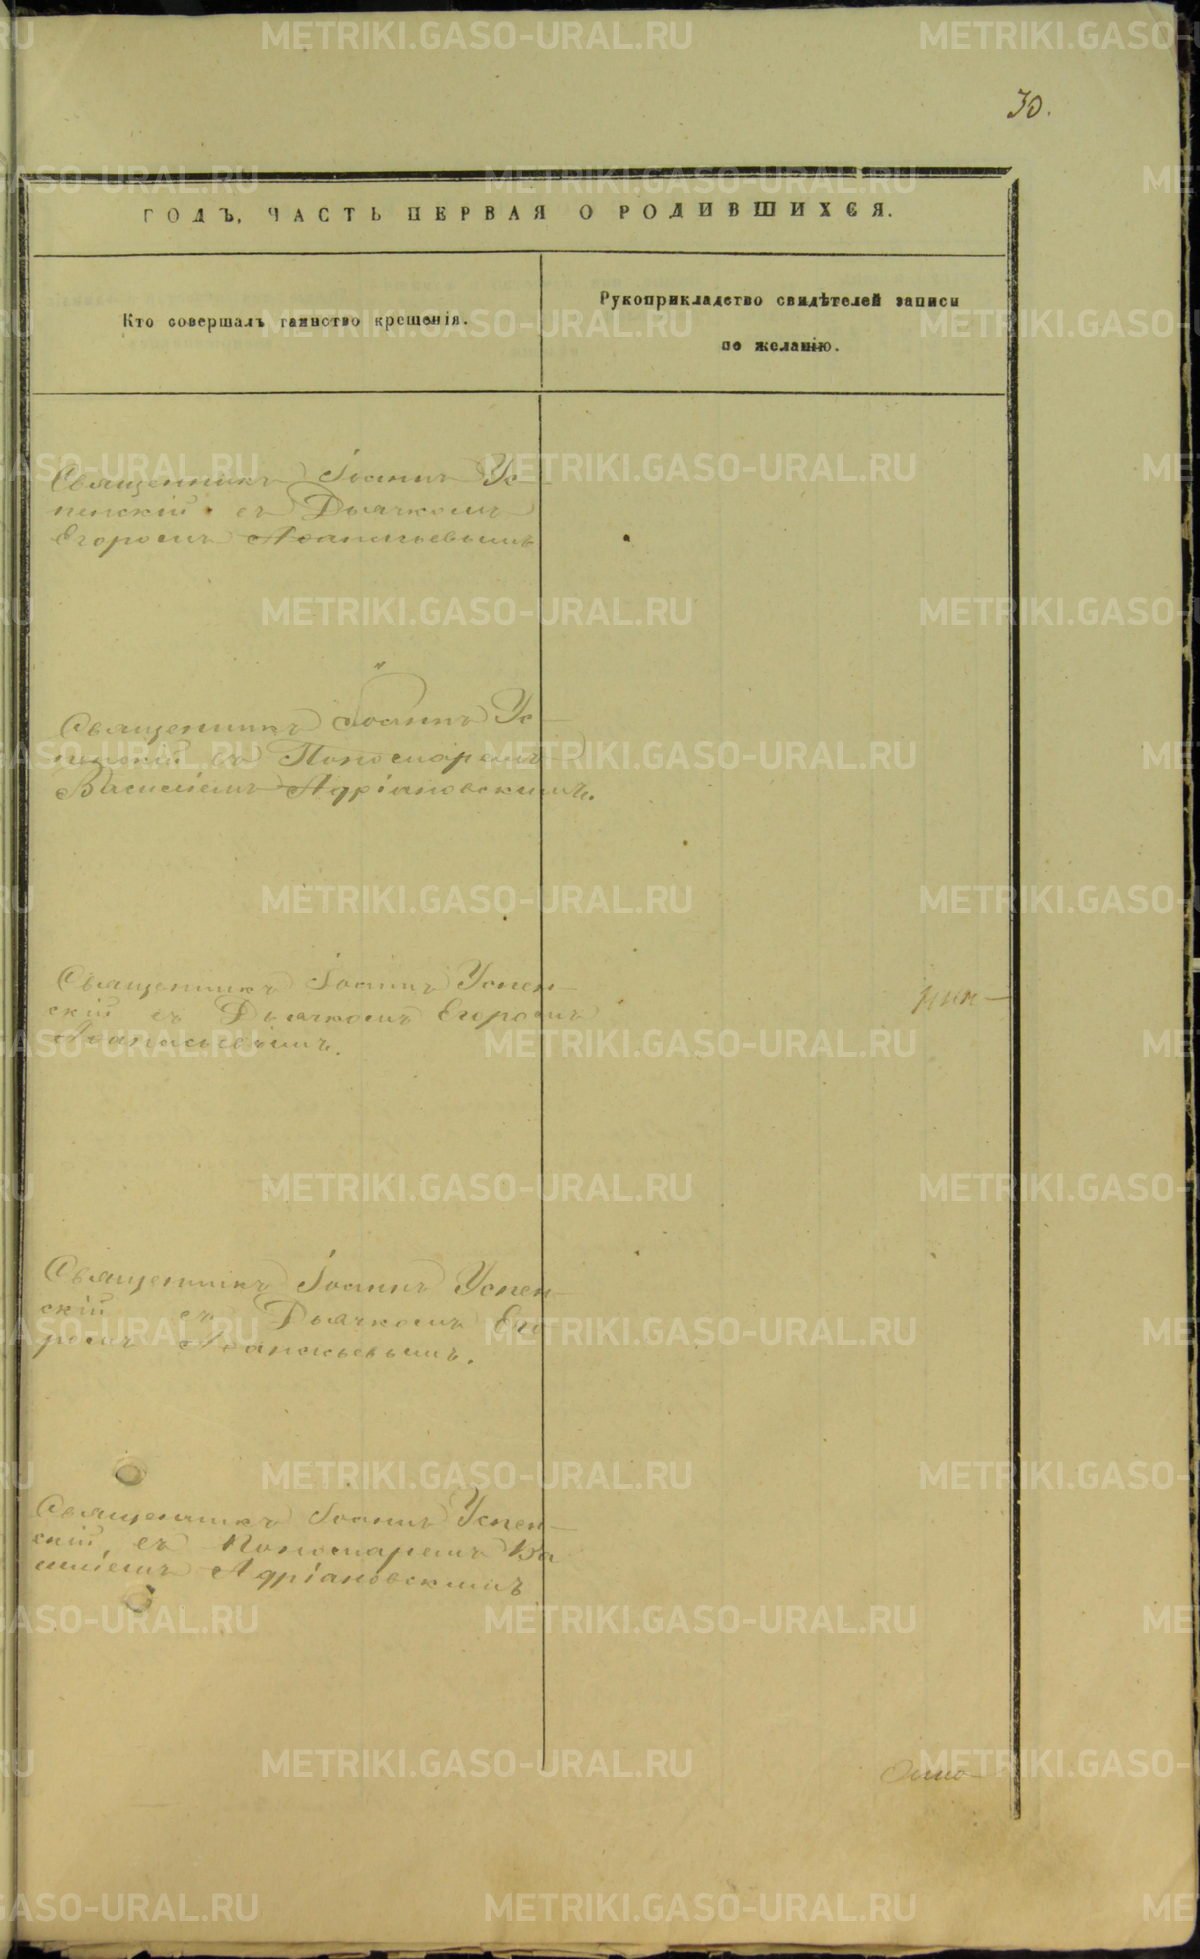 30.
ГОДЪ, ЧАСТЬ ПЕРВАЯ О РОДИВШИХСЯ.
Кто совершалъ таинство крещенія.
Рукоприкладство свидѣтелей записи
по желанію.
Священникъ Іоаннъ Ус
пенскій съ Дьячкомъ
Егоромъ Аѳанасьевымъ
Священникъ Іоаннъ Ус
пенскій съ Пономаремъ
Василіемъ Адріановскимъ.
Священникъ Іоаннъ Успен
скій съ Дьячкомъ Егоромъ
Аѳанасьевымъ.
Священникъ Іоаннъ Успен
скій съ Дьячкомъ Его
ромъ Аѳанасьевымъ.
Священникъ Іоаннъ Успен
скій, съ Пономаремъ Ва
силіемъ Адріановскимъ
METRIKI.GASO-URAL.RU